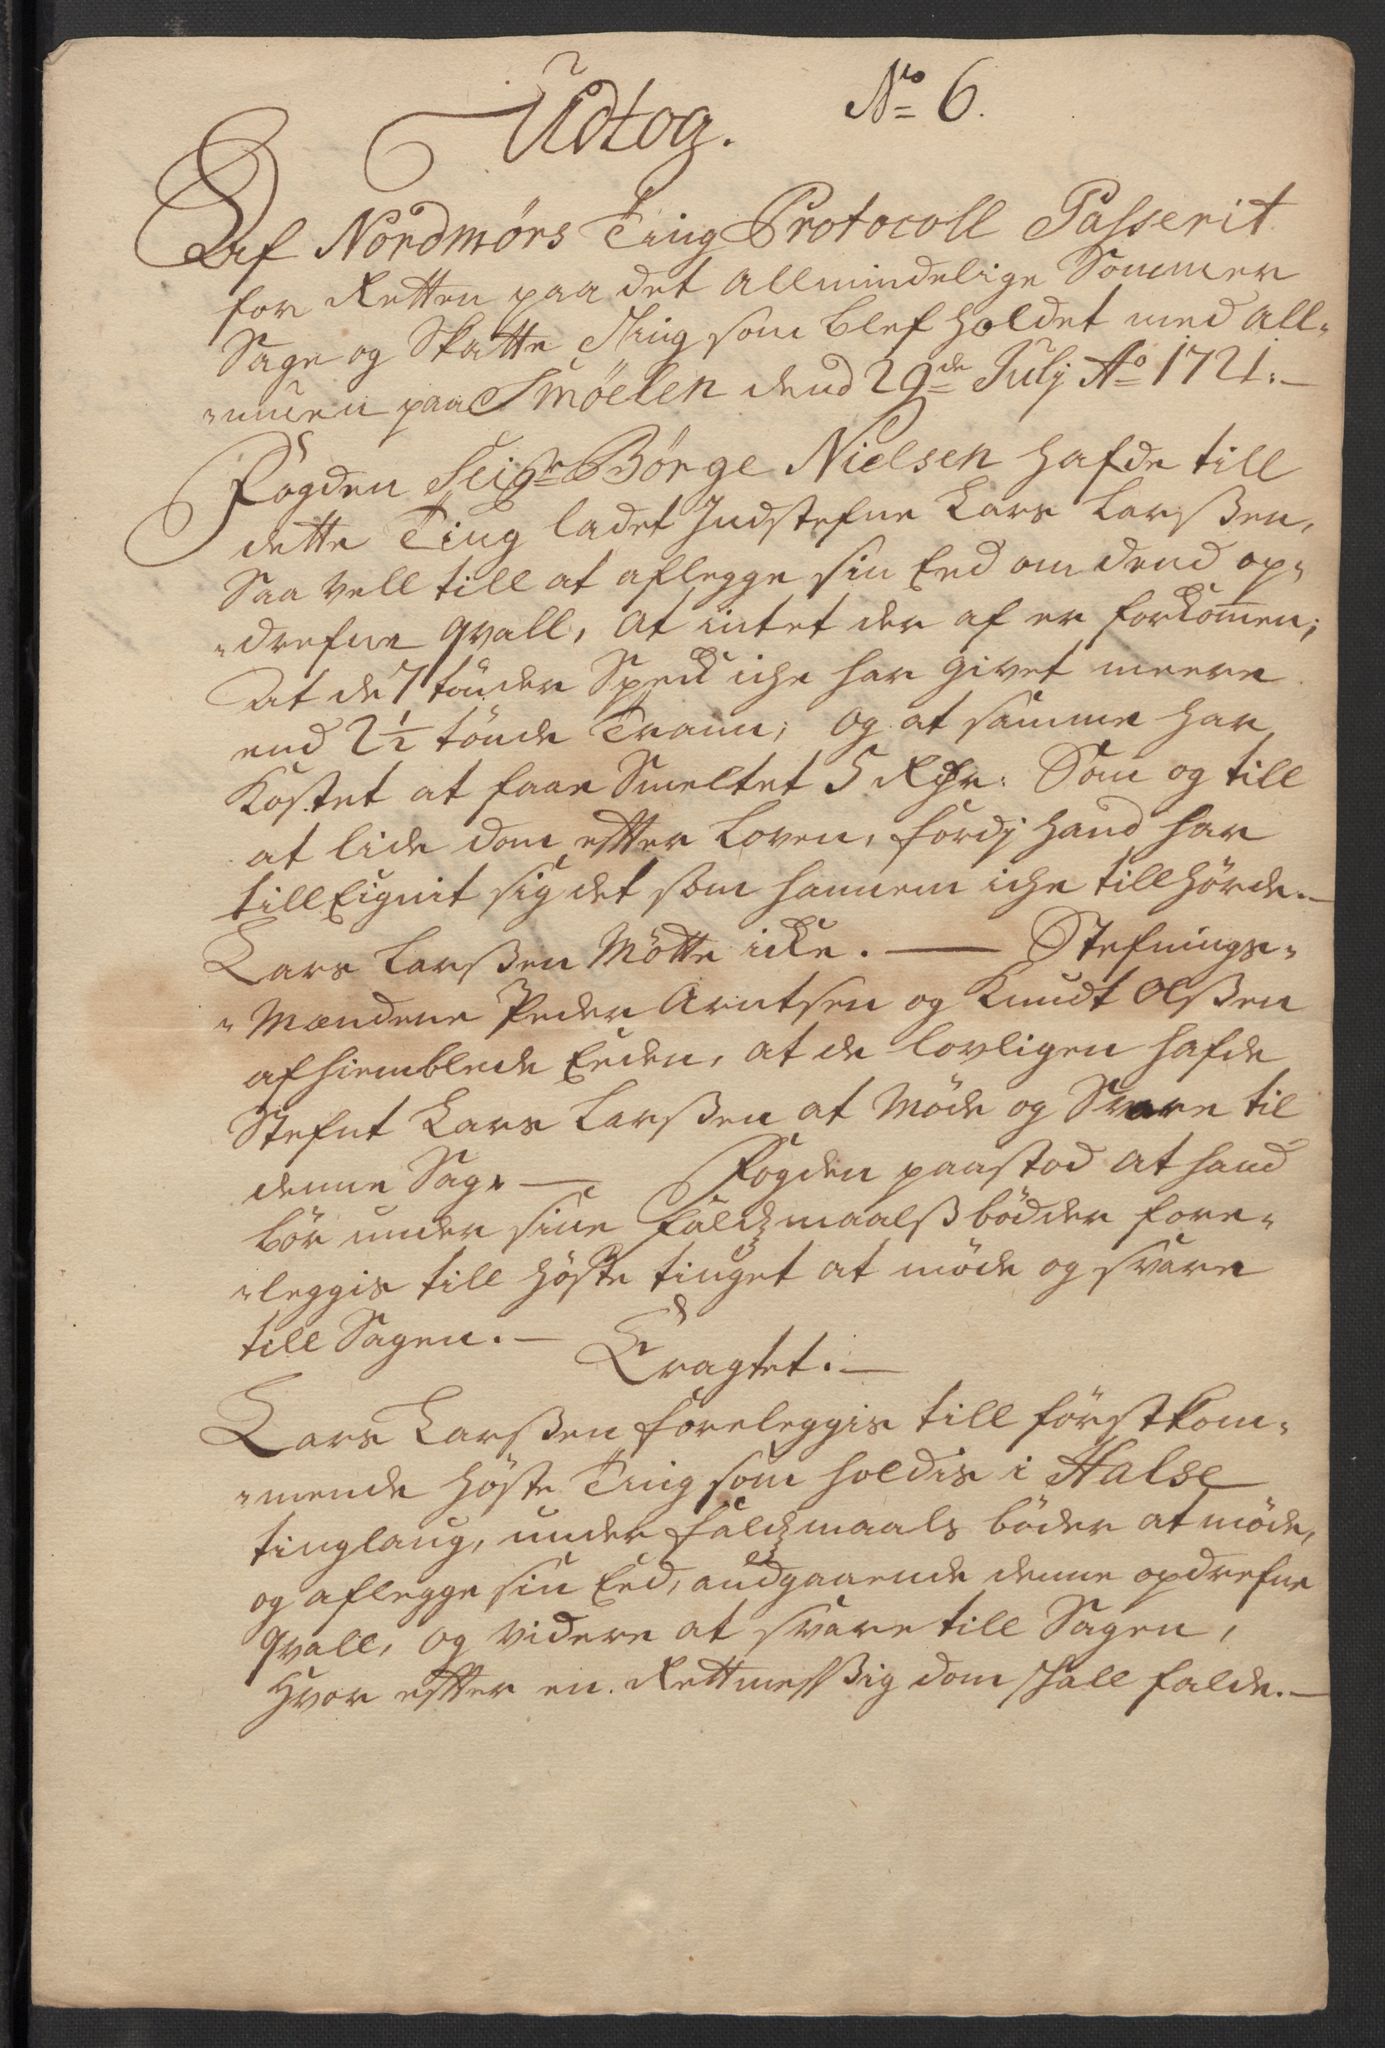 No 6.
Udtog.
Af Nordmørs Ting Protocoll Passerit
for Retten paa det allmindelige Sommer
Sage og Skatte Ting som blef holdet med all-
-muen paa Smøelen dend 29de Julj Ao 1721.-
Fogden Seigr Børge Nielsen hafde till
dette Ting ladet Indstefne Lars Larßen,
Saa vell till at aflegge sin Eed om dend op-
-drefne qvall, at intet der af er forkommen;
at de 7 tønder Speck iche har givet meere
end 2½ tønde Trann; og at samme har
Kostet at faae Smeltet 5 Rdr: Som og till
at lide dom effter Loven, fordj hand har
till Eignit sig det som hannem iche tillhørde.-
Lars Larßen Møtte icke. — Stefnings-
-Mændene Peder Arntsen og Knudt Olßen
afhiemblede Eeden, at de lovligen hafde
Stefnt Lars Larßen at Møde og Svare til
denne Sag — Fogden paastod at hand
bør under sine Faldzmaalß bødder fore-
-leggis till Høste tinget at møde og svare
till Sagen. — Eragtet. —
Lars Larßen foreleggis till førstkom-
-mende Høste Ting som holdis i Halse
tinglaug, under faldzmaals bøder at møde,
og aflegge sin Eed, andgaaende denne opdrefne
qvall, og videre at svare till Sagen,
Hvor effter en Rettmeßsig dom shall falde. —